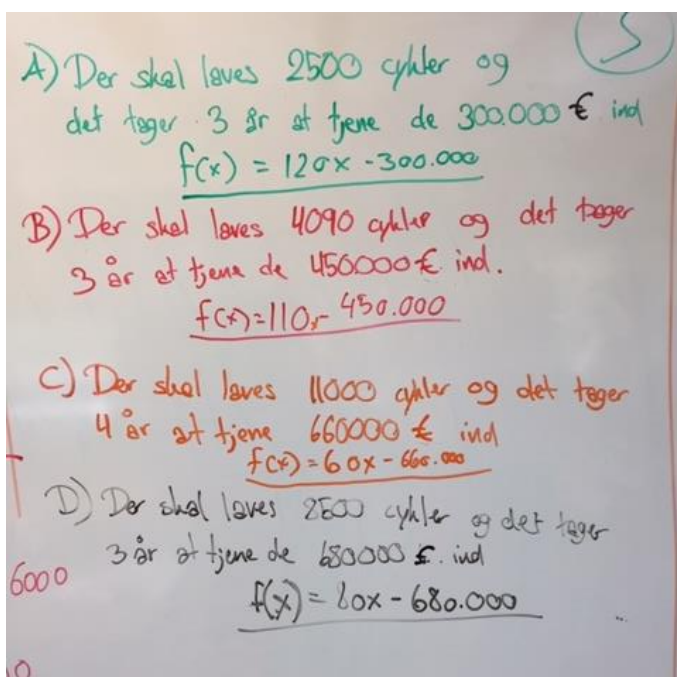 5
A) Der skal laves 2500 cykler og
det tager 3 år at tjene de 300.000 € ind
f(x) = 120x - 300.000
B) Der skal laves 4090 cykler og det tager
3 år at tjene de 450000 € ind.
f(x)=110,- 450.000
C) Der skal laves 11000 cykler og det tager
4 år at tjene 660000 € ind
f(x) = 60x - 660.000
D) Der skal laves 8500 cykler og det tager
3 år at tjene de 680000 €. ind
6000
f(x) = 80x - 680.000